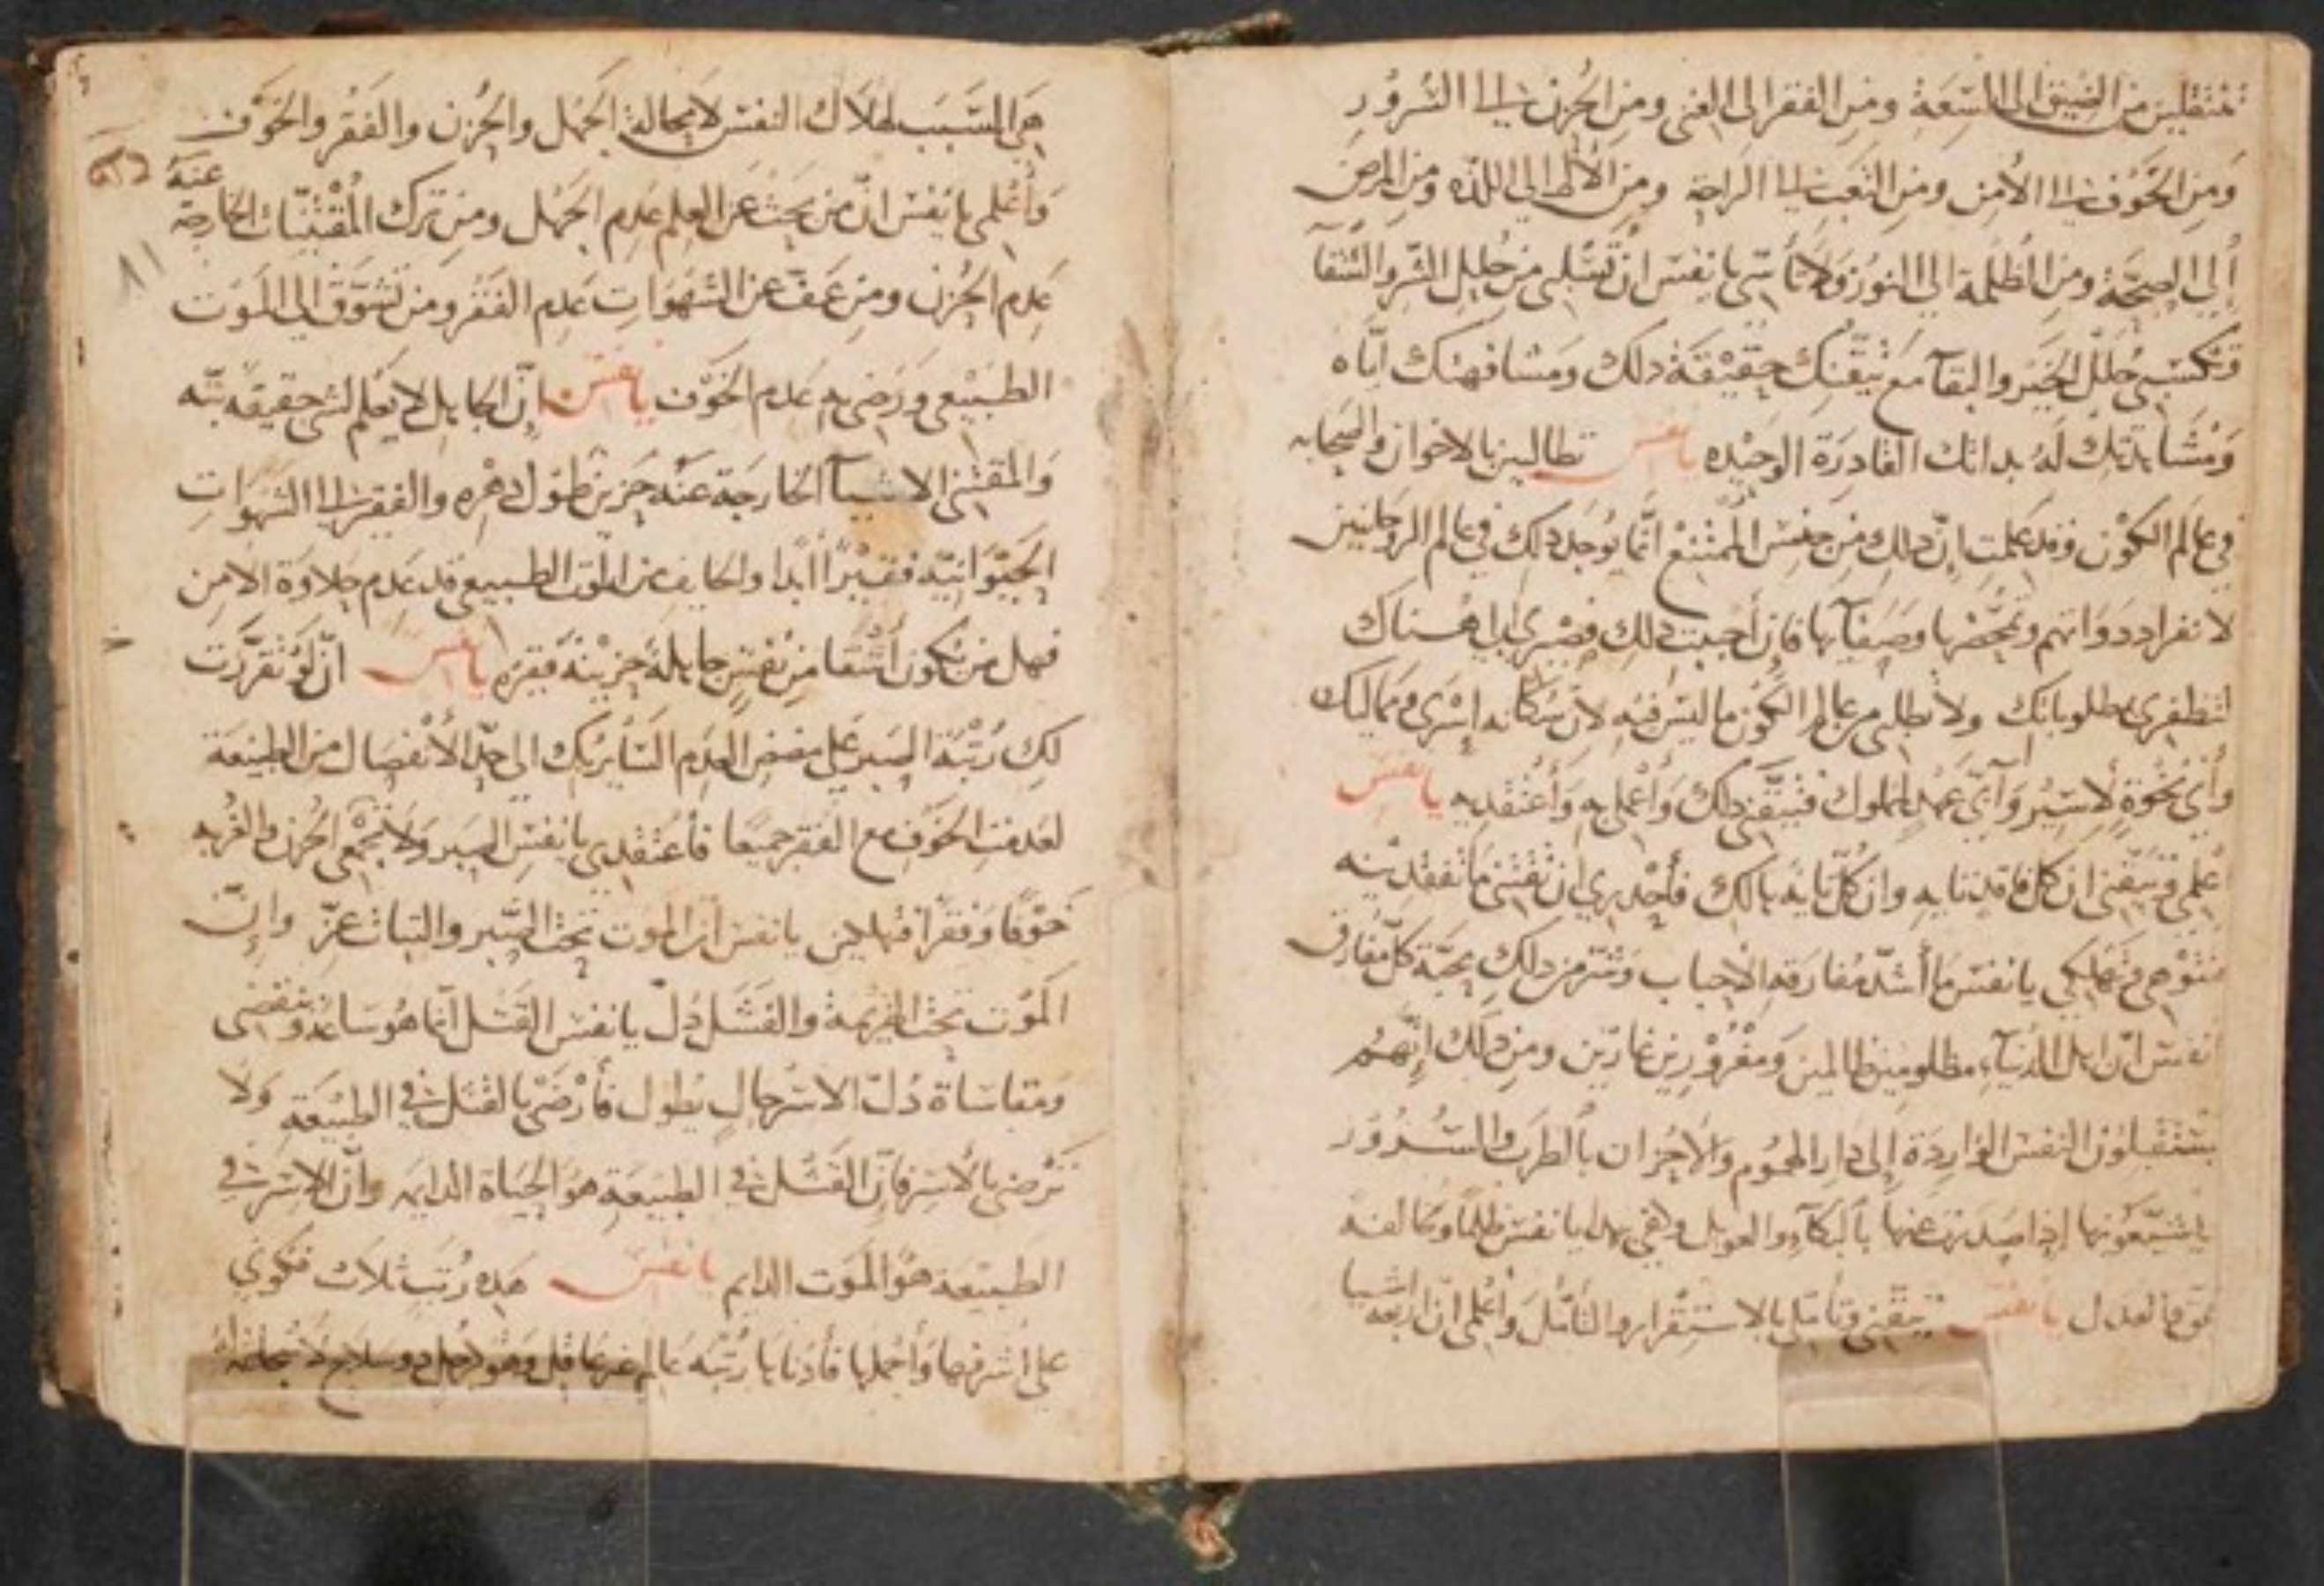 تنتقلين من الضيق الى السّعَة ومن الفقر الى الغنى ومن الحُزن الى السُرُور
وَمن الخَوْف الى الاَمن ومن التعَب الى الراحة ومن الألم الى اللذه ومن المرض
إلى الصِحَّة ومن الظلمة الى النور وَلا تأسَي يا نفسَ ان تُسْلبى من حلل الشر والشقآ
وتكتسَبي حُلَل الخَير والبقآ مع تيقّنك حقيْقَة ذلك وَمشافهتك ايّاه
وَمُشَاهدتك لهُ بداتك القادِرَة الوحيْده يا نفس تطالبين بالاخوان والصحابه
في عَالَم الكوْن وقد عَلمت انّ ذلك من جنس الممتنع انّما يُوجد ذلك في عَالم الروحانيين
لانفراد دَوَاتهم وتمحّضها وصَفآيها فان أحببت ذلك فصْيري الى هناك
لتظفري بمطلوباتك ولا تطلبى من عالم الكون ما ليسَ فيه لان سُكانه اسْرَى ومماليك
وأيّ نُخوةٍ لأسيْر وَأيّ عَهدٍ لمملوك فتيقَّني ذلك وَأعْملي به وَأعتقديه يا نفسَ
أعلمي وتيقّني ان كل فاقدٍ تايه وان كلّ تايه هالك فأحْدري ان تقتني ما تفقديْنه
فتتوْهي وتهلكي يا نفسَ ما أشدّ مُفارقة الاحباب وَشرّ من ذلك محبّة كلّ مفارق
يا نفسَ انّ اهل الدنيآء مظلومين ظالمين وَمغْرُوْرين غارّين ومن ذلك إنّهُم
يستقبلون النفسَ الوَاردَة إلى دَار الهمُوم والاحزان بالطرَب والسُرُور
ويشيّعُونها اذا صَدرت عنها بالبكآء والعويل وكفي بهذا يا نفسَ ظلمًا ومخالفة
للحق والعدل يا نفسَ تيقّني وتأملي بالاستقرار والتأمّل وَأعْلمي انّ اربعَة اشيا
هي السَّبَب لهَلاَك النفسَ لا محالة الجَهل والحُزن والفَقر والخَوْف
وَأعْلمي يا نفسَ انّ من بحث عَن العِلم عَدِم الجَهْل ومن تَرك المُقْتنيَات الخارجة عنهُ
عَدِم الحُزن ومن عَفّ عن الشهَوَات عَدِم الفَقر ومن تَشَوَّق الى الموَت
الطبَيْعي وَرَضي به عَدِم الخَوْف يا نفسَ إنّ الجاهل لا يَعْلم لشي حقيقة بتّه
وَالمقتني الاشيآء الخارجَة عَنْه حَزين طُول دَهْره والفقير الى الشهَوَات
الحَيَوَانيّه فقيرًا أبَدًا والخايف من الموت الطبيعي قد عَدِم حلاوَة الامن
فهل من يكون أشْقا من نفسٍ جاهلة حَزيْنَة فقيره يا نفسَ انّ لَوْ تقرَّرت
لكِ رُتْبَة الصَبر علي مضض العَدم السَّايربكِ الى حدّ الأنفصَال من الطبيعَة
لعَدمت الخَوْف مع الفقر جميعًا فأعْتقدي يا نفسَ الصَبر وَلا تجْمعي الحُزن والغُربه
خَوْفا وَفقرًا فتهلكين يا نفسَ ان الموَت تحت الصَّبر والثبات عزّ وإنّ
المَوْت تحتَ الهزيمَة والفَشَل ذلّ يا نفسَ القَتل انّما هُو سَاعَة وتنقضي
ومقاسَاة ذُلّ الاسْر حال يَطول فأرْضَيْ بالقتل في الطبيْعَة وَلا
تَرْضي بالأسْر فانّ القَتل في الطبيَعة هوَ الحيَاة الدايمه وانّ الاسْر في
الطبيَعة هُوَ الموَت الدايم يا نفسَ هَذه رُتَب ثَلاث فكُوني
على اشرفها وَأجملها فأدناها رُتبَة عَالم غير عَاقل وَهُو